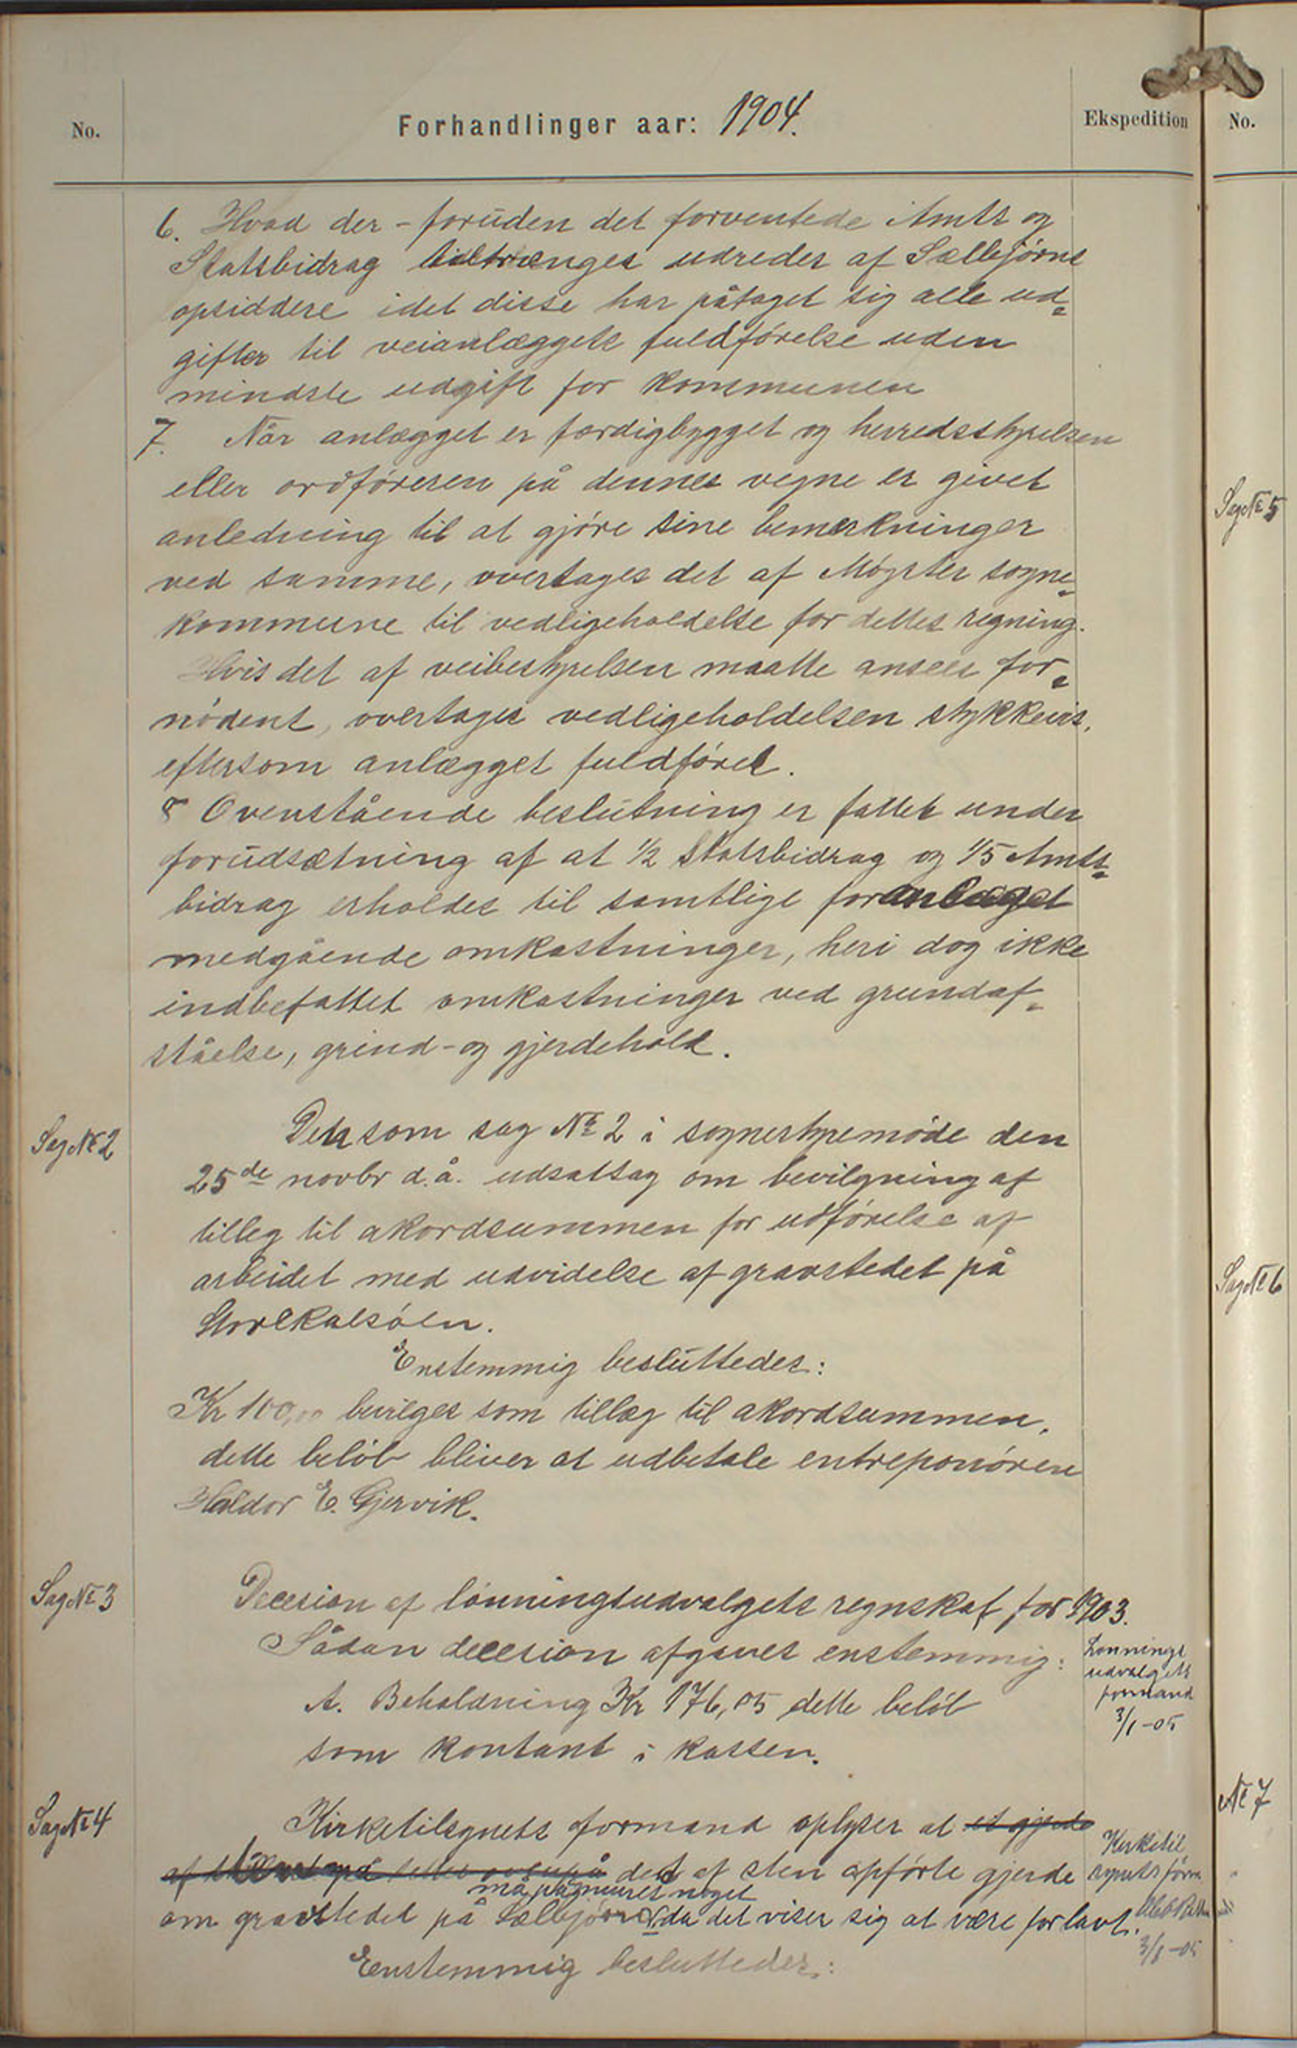 No.
Forhandlinger aar: 1904.
Ekspedition
No.
6. Hvad der - foruden det forventede Amts og
Statsbidrag tiltrænges udredes af Sælbjørns
opsiddere idet disse har påtaget sig alle ud-
gifter til veianlæggets fuldførelse uden
mindste udgift for kommunen
7. Når anlægget er færdigbygget og herredsstyrelsen
eller ordføreren på dennes vegne er givet
anledning til at gjøre sine bemerkninger
ved samme, overtages det af Møgster sogne-
kommune til vedligeholdelse for dettes regning.
Hvis det af veibestyrelsen maatte ansees for-
nødent, overtages vedligeholdelsen stykkevis,
eftersom anlægget fuldføres.
8 Ovenstående beslutning er fattet under
forudsætning af at 1/2 Statsbidrag og 1/5 Amts-
bidrag erholdes til samtlige for anlæget
medgående omkostninger, heri dog ikke
indbefattet omkostninger ved grundaf-
ståelse, grind- og gjerdehold.
Sag No 2
Den som sag No 2 i sognestyremøde den
25de novbr d.å. udsat sag om bevilgning af
tillæg til akordsummen for udførelse af
arbeidet med udvidelse af gravstedet på
Storekalsøen.
Enstemmig besluttedes:
Kr 100,00 bevilges som tillæg til akordsummen,
dette beløb bliver at udbetale entreponøren
Haldor E. Gjervik.
Sag No 3
Decesion af lønningsudvalgets regnskab for 1903.
Sådan decesion afgaves enstemmig:
A. Beholdning Kr 176,05 dette beløb
som kontant i kassen.
Lønnings
udvalgets
formand
3/1-05
Sag No 4
Kirketilsynets formand oplyser at et gjerde
af på dette det af sten opførte gjerde
må påmures noget
om gravstedet på Sælbjørn da det viser sig at være for lavt.
Enstemmig besluttedes:
Kirketil
synets form
3/1-05
Sag No 5
Sag No 6
No 7